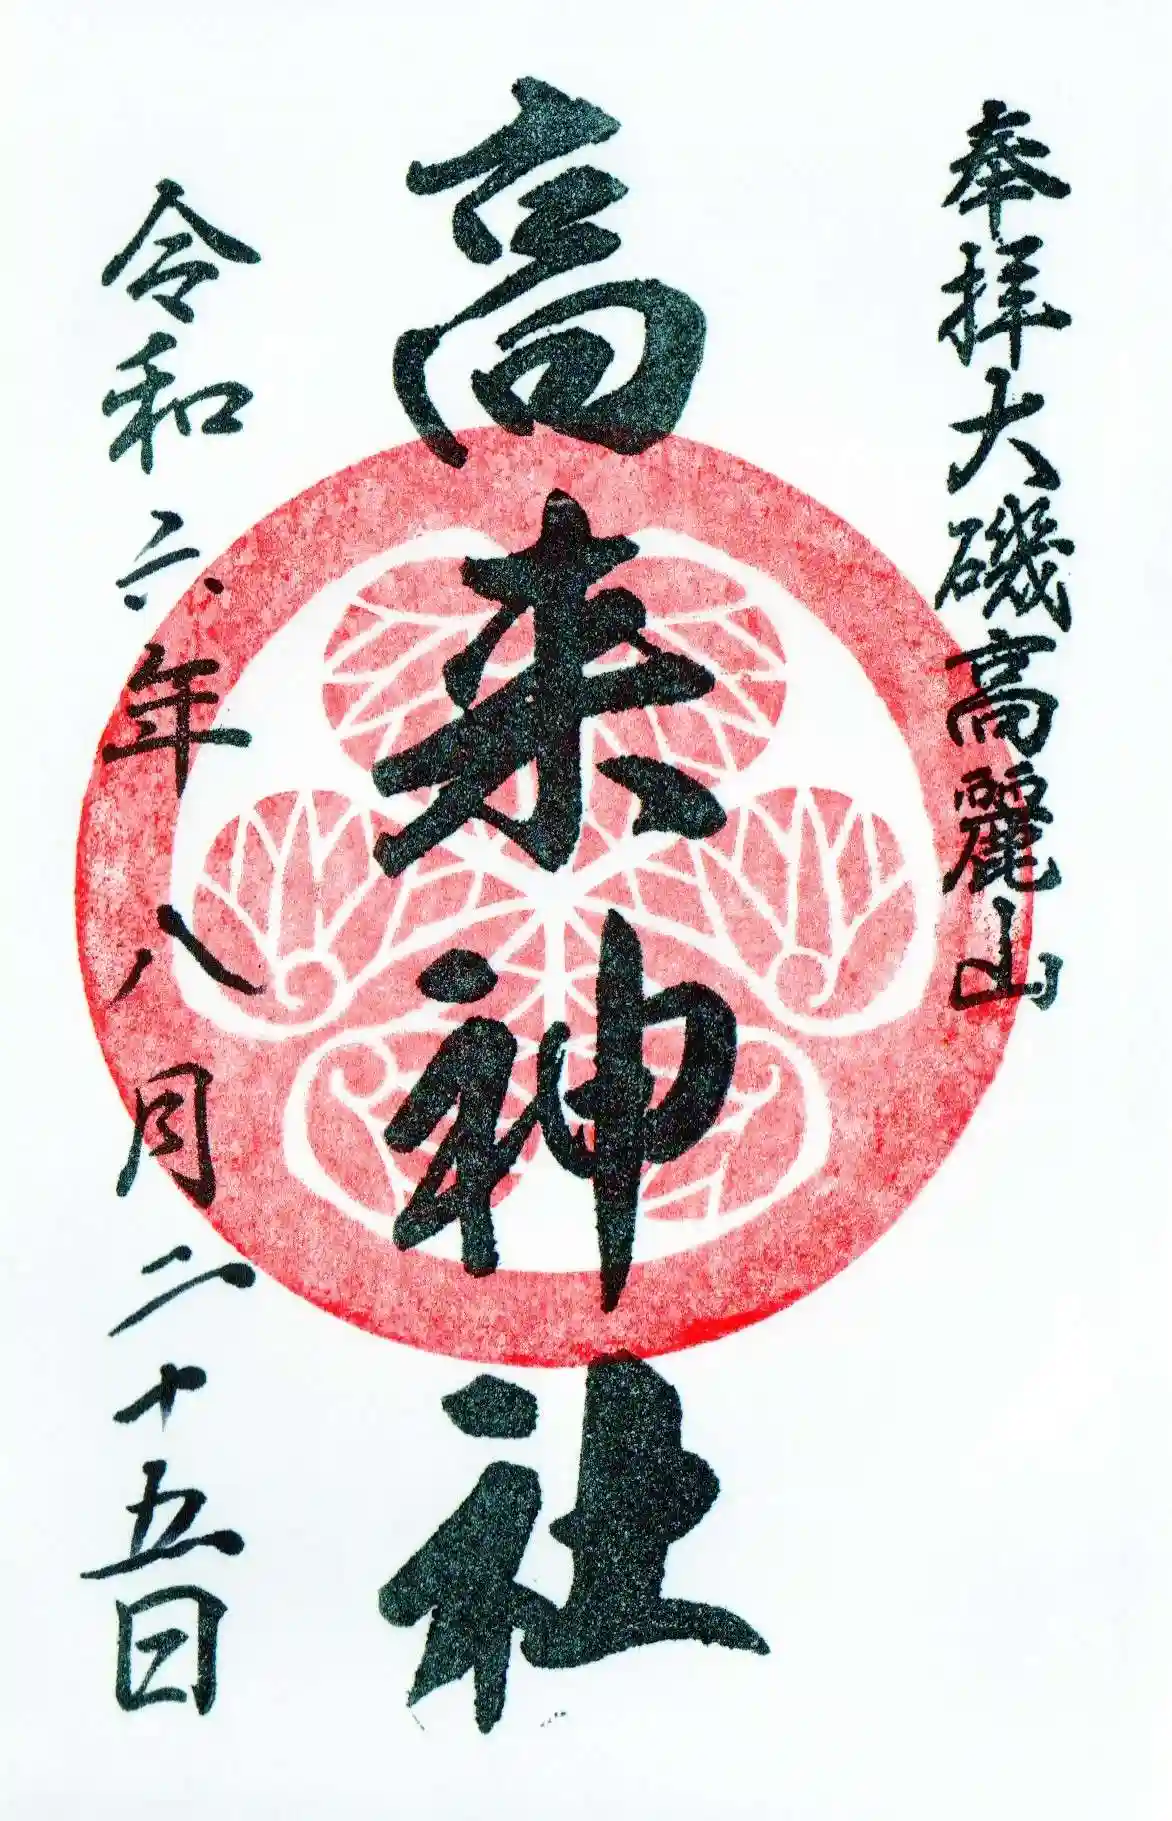 奉拝大磯高麗山
高来神社
令和六年八月二十五日